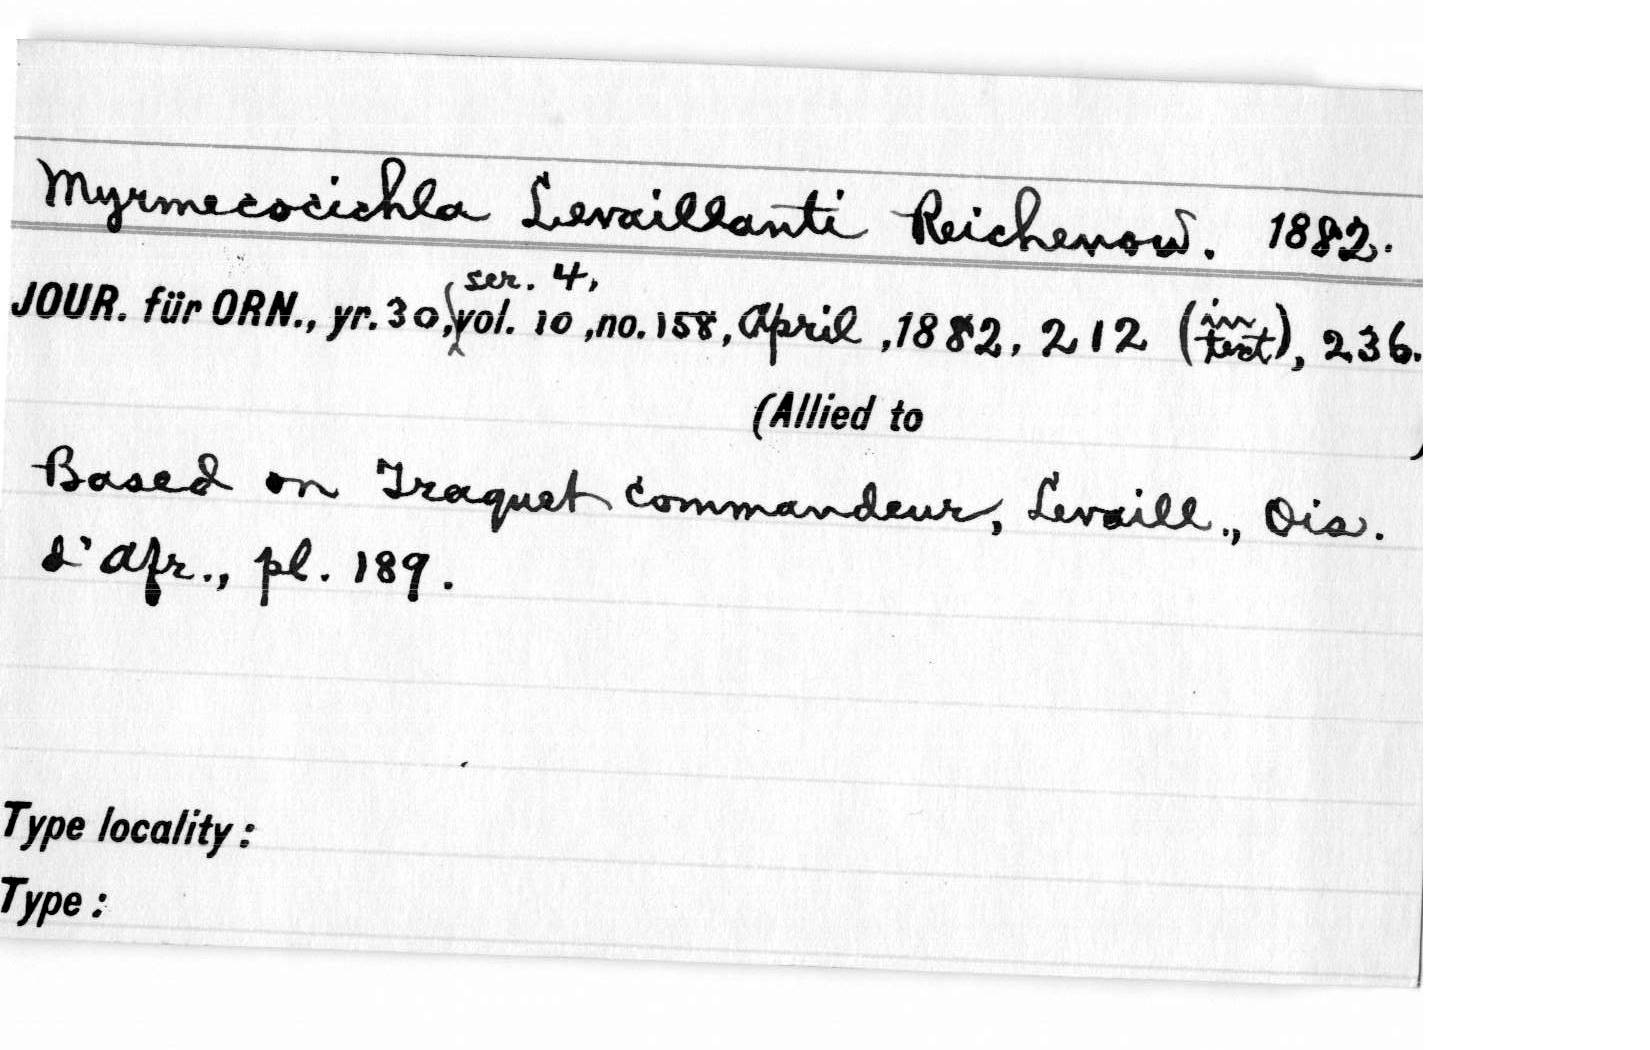 Myrmecocichla Levaillanti Reichenow. 1882.
JOUR. für ORN., yr. 30, ser. 4, vol. 10, no. 158, April, 1882, 212 (in text), 236.
(Allied to )
Based on Traquet commandeur, Levaill., Ois.
d'Afr., pl. 189.
Type locality:
Type: